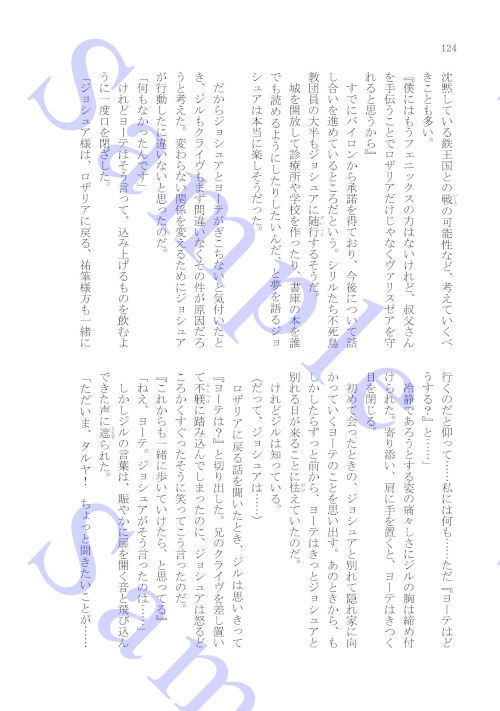 124
沈黙している鉄王国との戦の可能性など、考えていくべ
きことも多い。
『僕にはもうフェニックスの力はないけれど、叔父さん
を手伝うことでロザリアだけじゃなくヴァリスゼアを守
れると思うから』
すでにバイロンから承諾を得ており、今後について話
し合いを進めているところだという。シリルたち不死鳥
教団員の大半もジョシュアに随行するそうだ。
城を開放して診療所や学校を作ったり、書庫の本を誰
でも読めるようにしたりしたいんだ、と夢を語るジョ
シュアは本当に楽しそうだった。
だからジョシュアとヨーテがぎこちないと気付いたと
き、ジルもクライヴもまず間違いなくその件が原因だろ
うと考えた。変わらない関係を変えるためにジョシュア
が行動したに違いないと思ったのだ。
「何もなかったんです」
けれどヨーテはそう言って、込み上げるものを飲むよ
うに一度口を閉ざした。
「ジョシュア様は、ロザリアに戻る、祐筆様方も一緒に
行くのだと仰って……私には何も……ただ『ヨーテはど
うする？』と……」
冷静であろうとする姿の痛々しさにジルの胸は締め付
けられた。寄り添い、肩に手を置くと、ヨーテはきつく
目を閉じる。
初めて会ったときの、ジョシュアと別れて隠れ家に向
かっていくヨーテのことを思い出す。あのときから、も
しかしたらずっと前から、ヨーテはきっとジョシュアと
別れる日が来ることに怯えていたのだ。
けれどジルは知っている。
（だって、ジョシュアは……）
ロザリアに戻る話を聞いたとき、ジルは思いきって
『ヨーテは？』と切り出した。兄のクライヴを差し置い
て不躾に踏み込んでしまったのに、ジョシュアは怒るど
ころかくすぐったそうに笑ってこう言ったのだ。
『これからも一緒に歩いていけたら、と思ってる』
「ねえ、ヨーテ。ジョシュアがそう言ったのは……」
しかしジルの言葉は、賑やかに扉を開く音と飛び込ん
できた声に遮られた。
「ただいま、タルヤ！　ちょっと聞きたいことが……
Sample
Sam